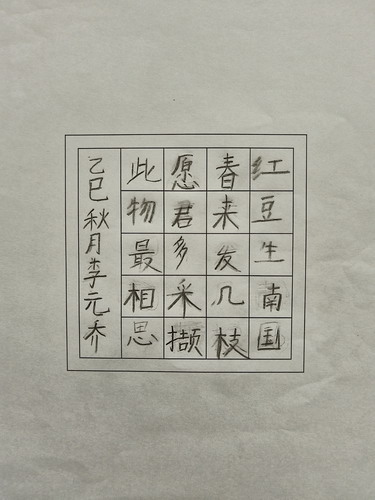 红豆生南国
春来发几枝
愿君多采撷
此物最相思
乙巳秋月李元乔